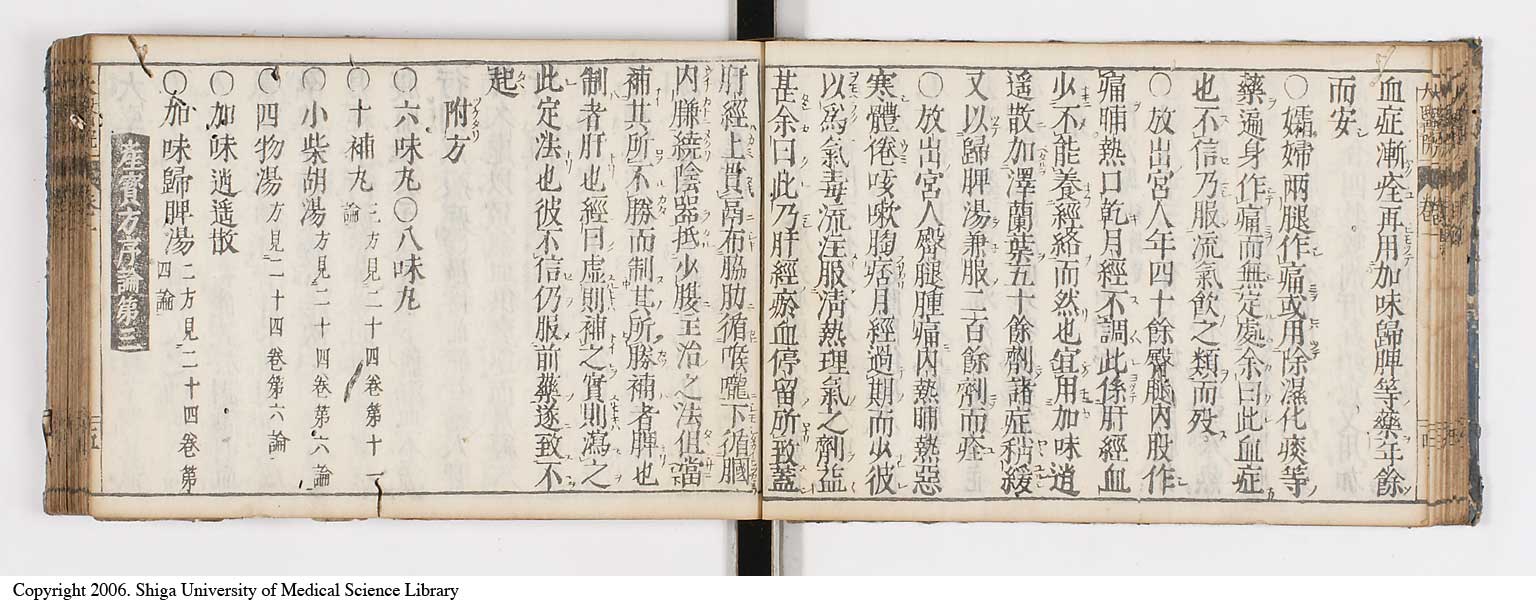 血症漸痊再用加味歸脾等藥年餘
而安
〇孀婦兩腿作痛或用除濕化痰等
藥遍身作痛而無定處余曰此血症
也不信乃服流氣飲之類而歿
〇放出宮人年四十餘臀腿內股作
痛晡熱口乾月經不調此係肝經血
少不能養經絡而然也宜用加味逍
遥散加澤蘭葉五十餘劑諸症稍緩
又以歸脾湯兼服二百餘劑而痊
〇放出宮人臀腿腫痛內熱晡熱惡
寒體倦咳嗽胸痞月經過期而少彼
以爲氣毒流注服淸熱理氣之劑益
甚余曰此乃肝經瘀血停留所致蓋
肝經上貫鬲布脇肋循喉嚨下循膕
內臁繞陰器抵少腹主治之法俱當
補其所不勝而制其所勝補者脾也
制者肝也經曰虛則補之實則瀉之
此定法也彼不信仍服前藥遂致不
起
附方
〇六味丸〇八味丸
〇十補丸三方見二十四卷第十一論
〇小柴胡湯方見二十四卷第六論
〇四物湯方見二十四卷第六論
〇加味逍遥散
〇加味歸脾湯二方見二十四卷第四論
產寶方序論第三
Copyright 2006. Shiga University of Medical Science Library